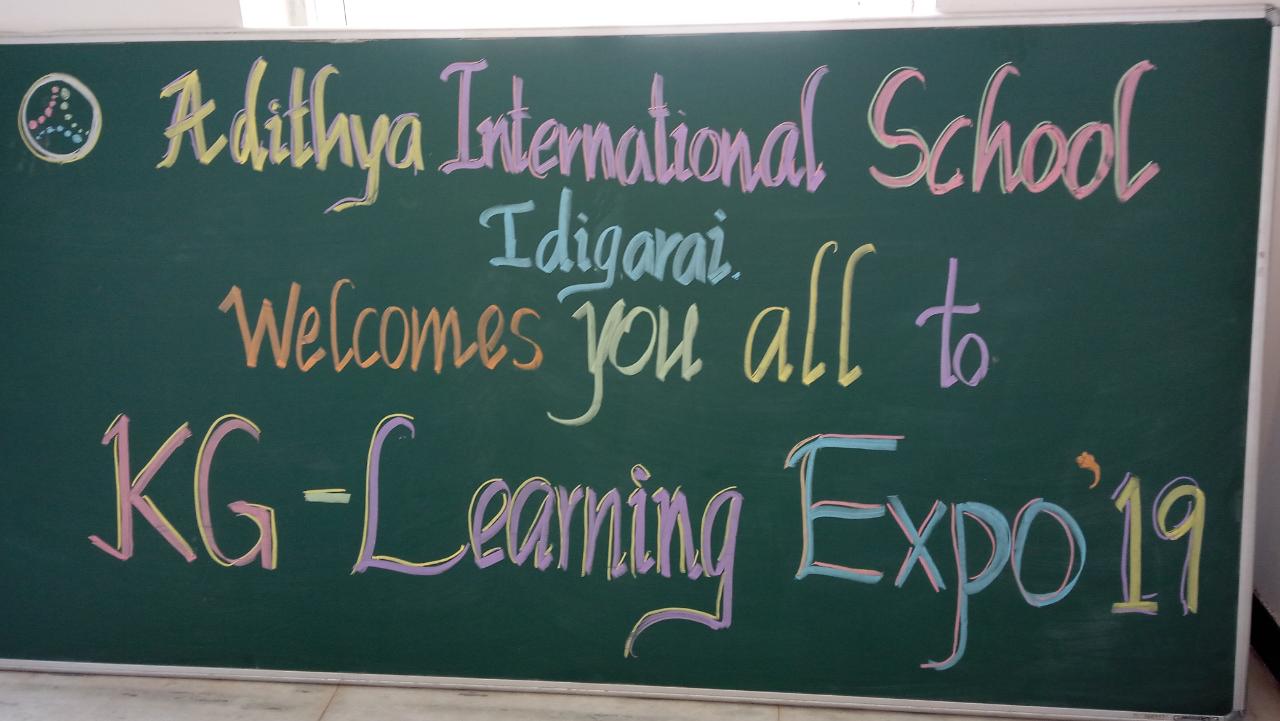 Adithya International School
Idigarai.
Welcomes you all to
KG-Learning Expo'19